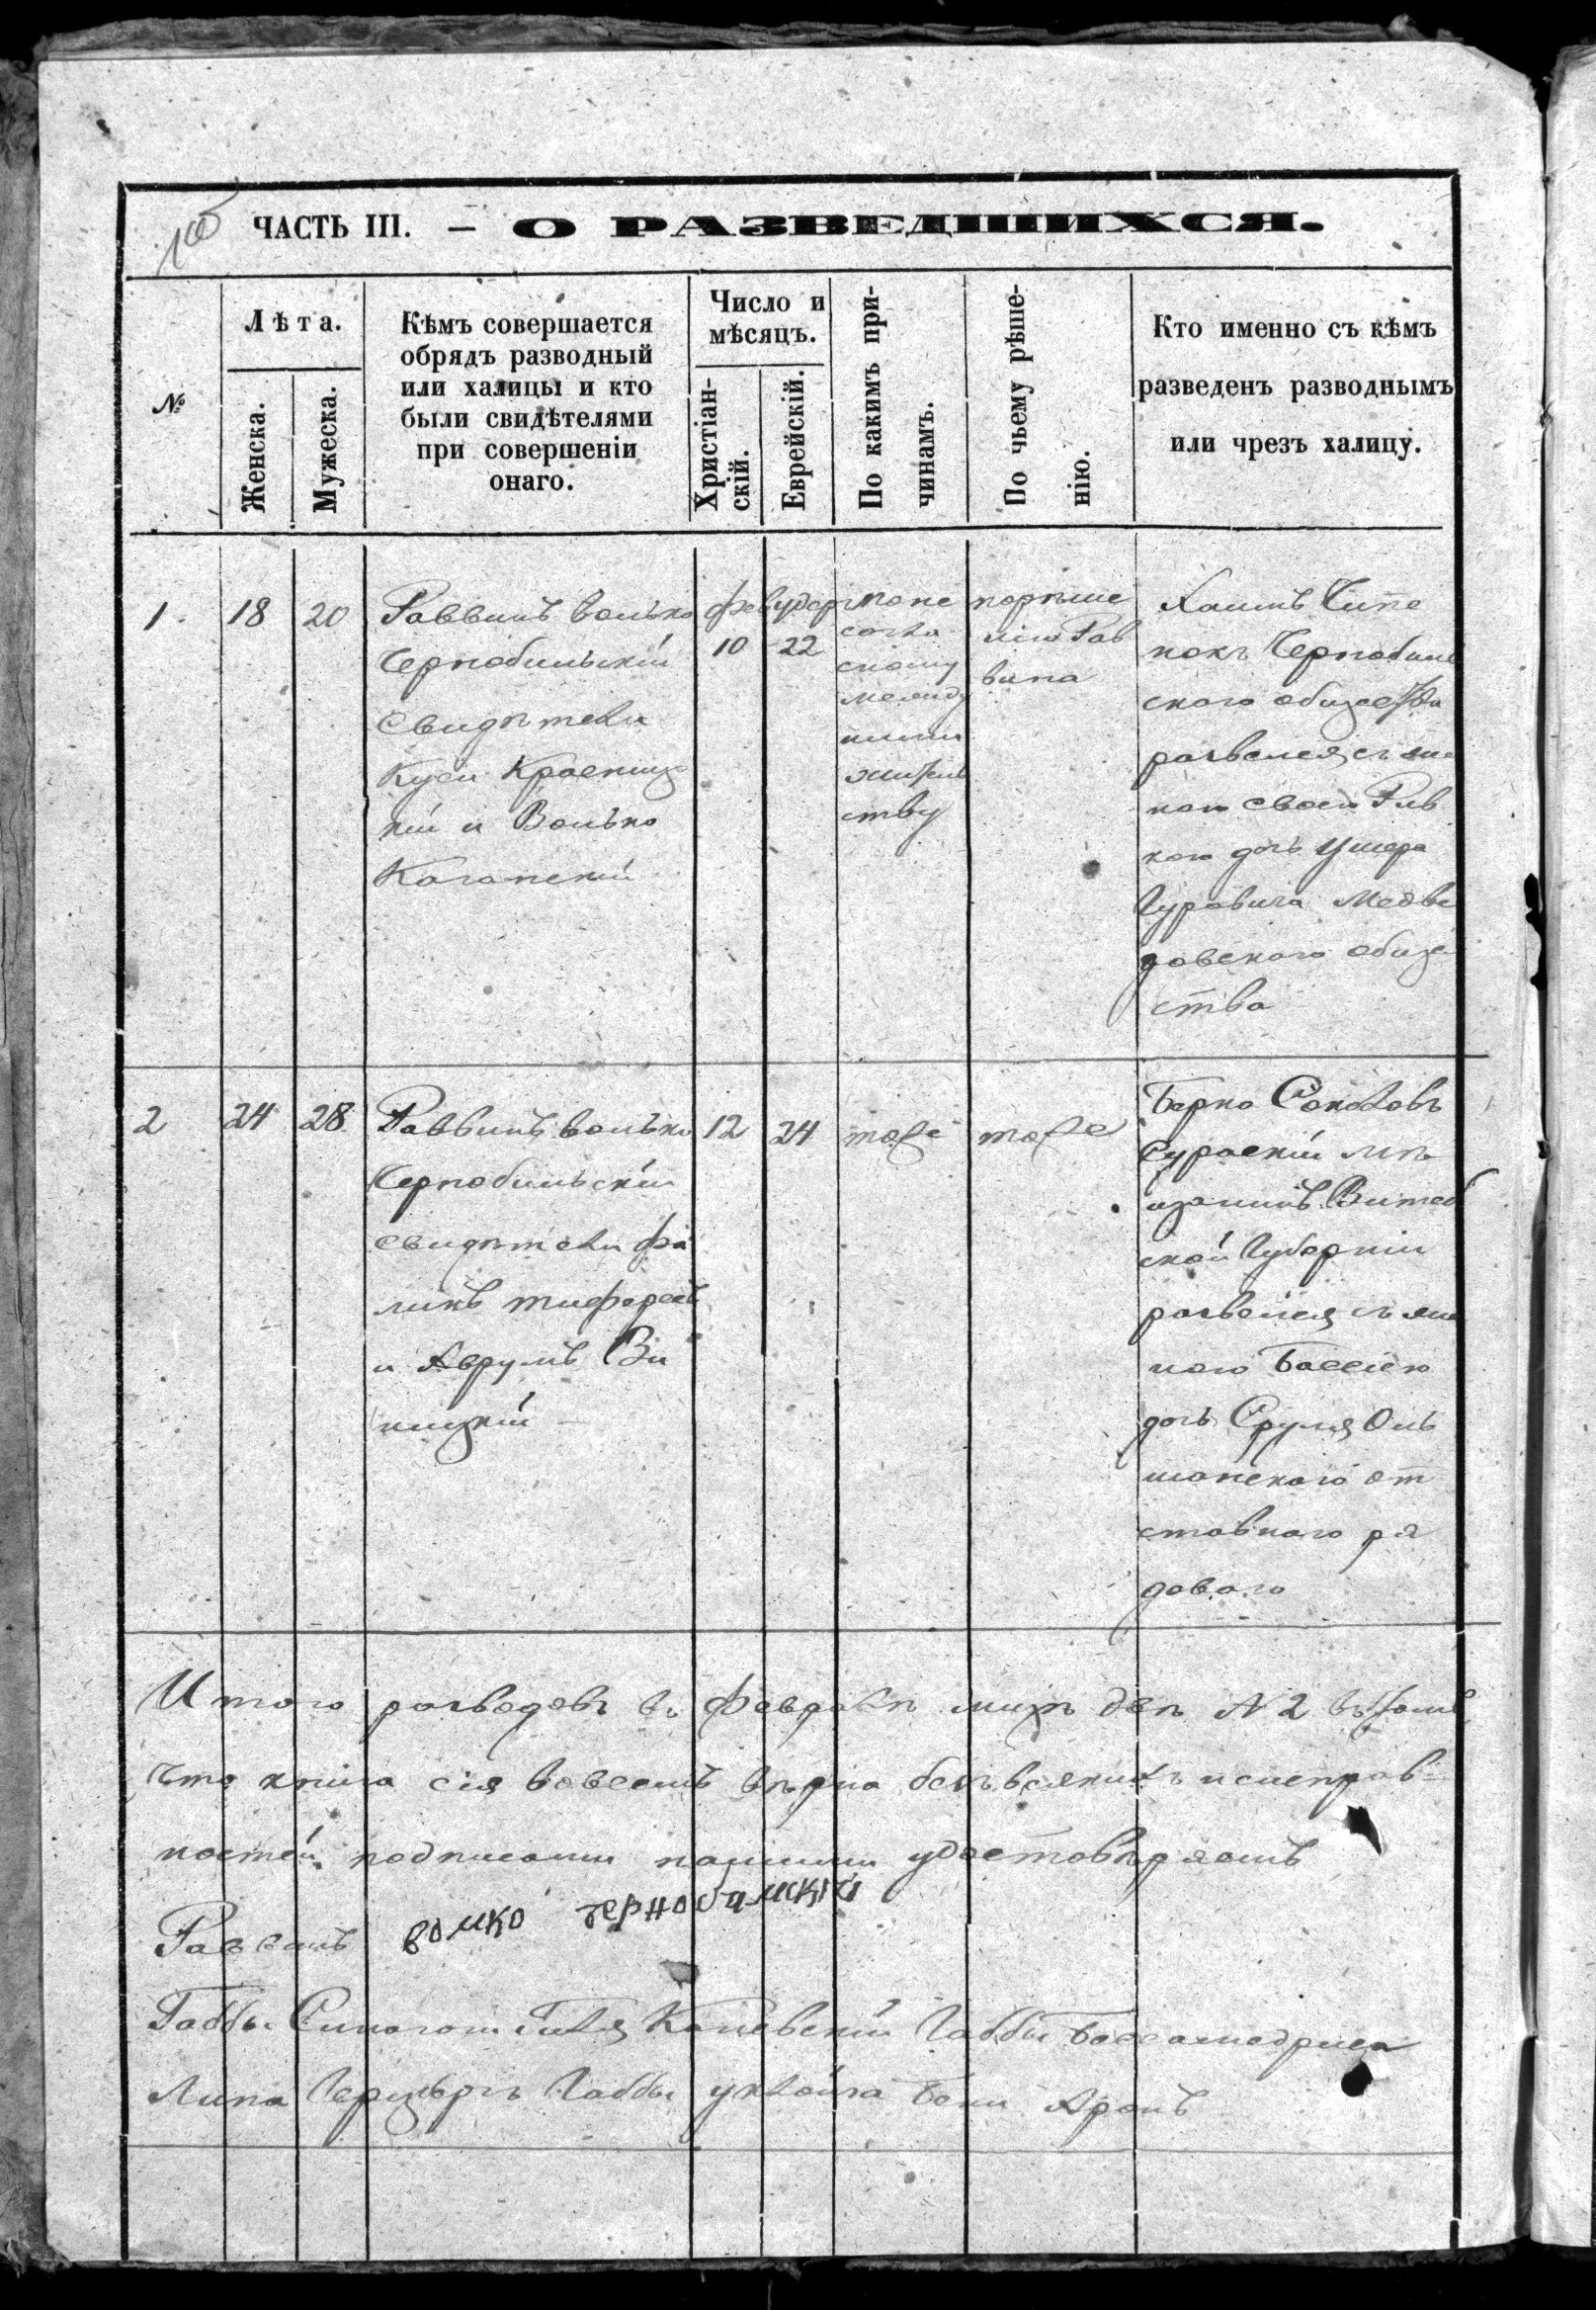 ЧАСТЬ III. — О РАЗВЕДШИХСЯ.
№
Лѣта.
Женска.
Мужеска.
Кѣмъ совершается
обрядъ разводный
или халицы и кто
были свидѣтелями
при совершеніи
онаго.
Число и
мѣсяцъ.
Христіан-
скій.
Еврейскій.
По какимъ при-
чинамъ.
По чьему рѣше-
нію.
Кто именно съ кѣмъ
разведенъ разводнымъ
или чрезъ халицу.
1
18
20
Раввинъ Волько
Чернобильскій
Свидѣтели
Куси Красниц
кій и Волько
Каганскій
Фев
10
удар
22
по не
согла
сному
между
ними
житель
ству
по рѣше
нію Рав
вина
Хаимъ
Чернобыл
ского общества
развелся съ же
ною своею Рив
кою дочь Ушера
Гуровича Медве
довского обще
ства
2
24
28
Раввинъ Волько
Чернобильскій
Свидѣтели
и Аврумъ Ви
ницкій
12
24
тоже
тоже
Берко Соколовъ
Суражскій мѣ
щанинъ Витеб
ской Губерніи
развелся съ же
ною Басею
дочь Сруля Оль
шанского от
ставного ря
дового
Итого разводовъ въ Февралѣ мцѣ двѣ № 2 въ томъ
что книга сія вовсемъ вѣрна безъ всякихъ неисправ-
ностей подписами нашими удостовѣряемъ
Раввинъ волко чернобилскій
Габбы Синагоги Каневскій Габбы
Липа Герцбргъ Габбы Аронъ